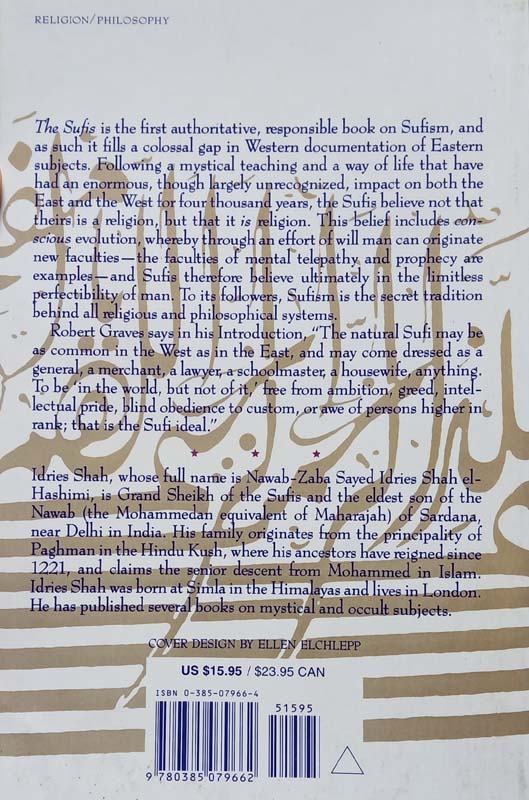 RELIGION/PHILOSOPHY
The Sufis is the first authoritative, responsible book on Sufism, and
as such it fills a colossal gap in Western documentation of Eastern
subjects. Following a mystical teaching and a way of life that have
had an enormous, though largely unrecognized, impact on both the
East and the West for four thousand years, the Sufis believe not that
theirs is a religion, but that it is religion. This belief includes con-
scious evolution, whereby through an effort of will man can originate
new faculties—the faculties of mental telepathy and prophecy are
examples—and Sufis therefore believe ultimately in the limitless
perfectibility of man. To its followers, Sufism is the secret tradition
behind all religious and philosophical systems.
Robert Graves says in his Introduction, "The natural Sufi may be
as common in the West as in the East, and may come dressed as a
general, a merchant, a lawyer, a schoolmaster, a housewife, anything.
To be 'in the world, but not of it,' free from ambition, greed, intel-
lectual pride, blind obedience to custom, or awe of persons higher in
rank; that is the Sufi ideal."
Idries Shah, whose full name is Nawab-Zaba Sayed Idries Shah el-
Hashimi, is Grand Sheikh of the Sufis and the eldest son of the
Nawab (the Mohammedan equivalent of Maharajah) of Sardana,
near Delhi in India. His family originates from the principality of
Paghman in the Hindu Kush, where his ancestors have reigned since
1221, and claims the senior descent from Mohammed in Islam.
Idries Shah was born at Simla in the Himalayas and lives in London.
He has published several books on mystical and occult subjects.
COVER DESIGN BY ELLEN ELCHLEPP
US $15.95 / $23.95 CAN
ISBN 0-385-07966-4
51595
9 780385 079662